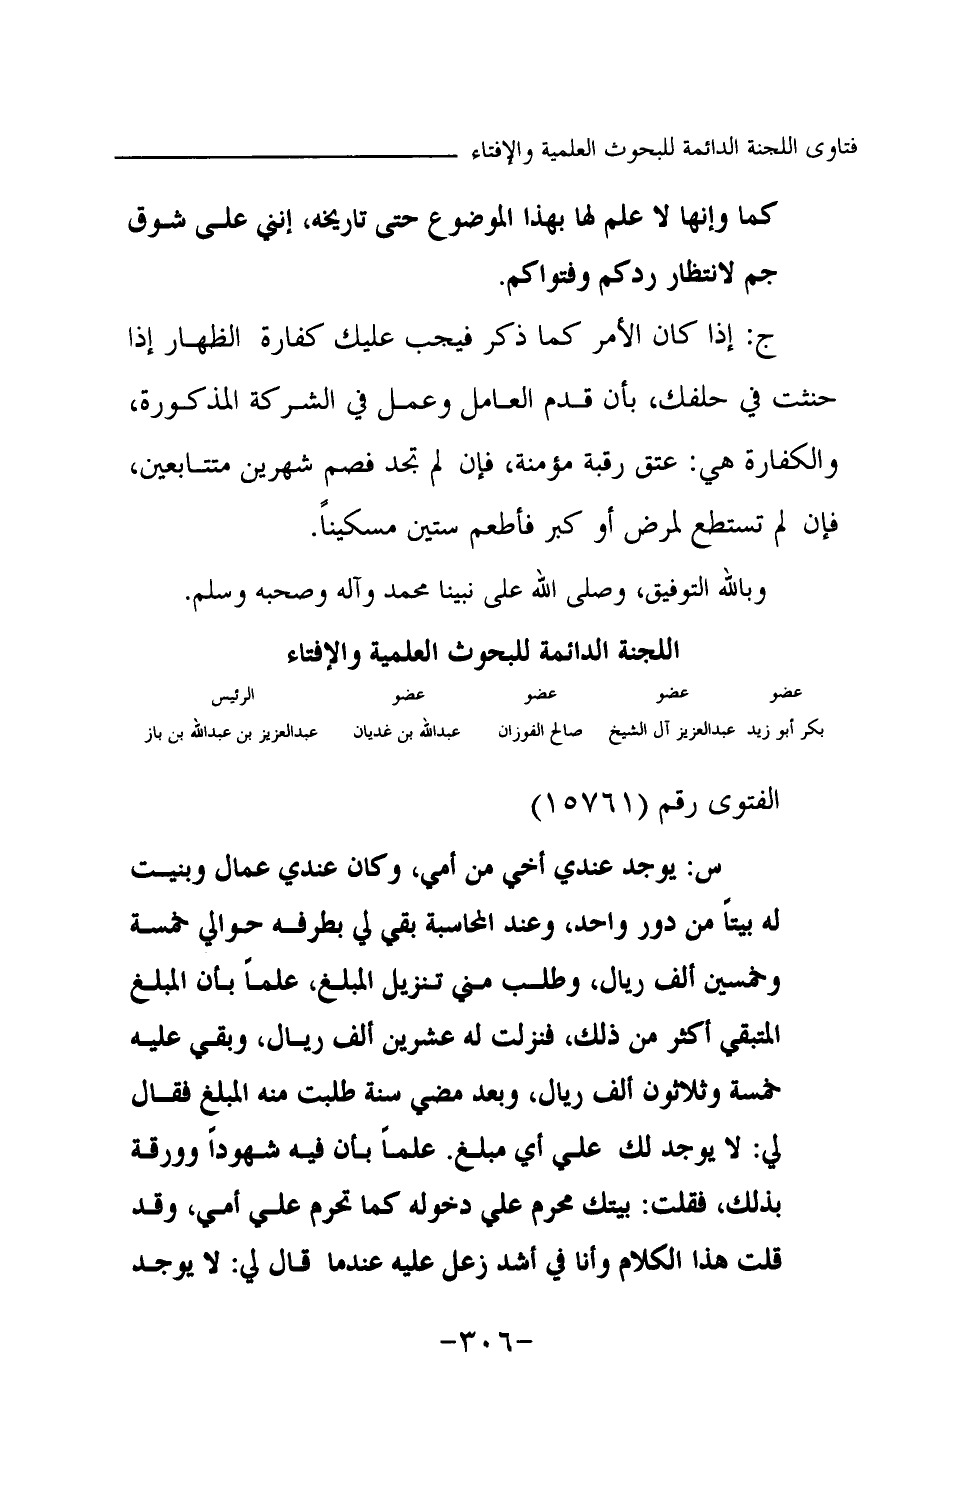 فتاوى اللجنة الدائمة للبحوث العلمية والإفتاء
كما وإنها لا علم لها بهذا الموضوع حتى تاريخه، إنني على شوق
جم لانتظار ردكم وفتواكم.
ج: إذا كان الأمر كما ذكر فيجب عليك كفارة الظهار إذا
حنثت في حلفك، بأن قدم العامل وعمل في الشركة المذكورة،
والكفارة هي: عتق رقبة مؤمنة، فإن لم تجد فصم شهرين متتابعين،
فإن لم تستطع لمرض أو كبر فأطعم ستين مسكيناً.
وبالله التوفيق، وصلى الله على نبينا محمد وآله وصحبه وسلم.
اللجنة الدائمة للبحوث العلمية والإفتاء
عضو عضو عضو عضو الرئيس
بكر أبو زيد عبدالعزيز آل الشيخ صالح الفوزان عبدالله بن غديان عبدالعزيز بن عبدالله بن باز
الفتوى رقم (١٥٧٦١)
س: يوجد عندي أخي من أمي، وكان عندي عمال وبنيت
له بيتاً من دور واحد، وعند المحاسبة بقي لي بطرفه حوالي خمسة
وخمسين ألف ريال، وطلب مني تنزيل المبلغ، علماً بأن المبلغ
المتبقي أكثر من ذلك، فنزلت له عشرين ألف ريال، وبقي عليه
خمسة وثلاثون ألف ريال، وبعد مضي سنة طلبت منه المبلغ فقال
لي: لا يوجد لك علي أي مبلغ. علماً بأن فيه شهوداً وورقة
بذلك، فقلت: بيتك محرم علي دخوله كما تحرم علي أمي، وقد
قلت هذا الكلام وأنا في أشد زعل عليه عندما قال لي: لا يوجد
-٣٠٦-